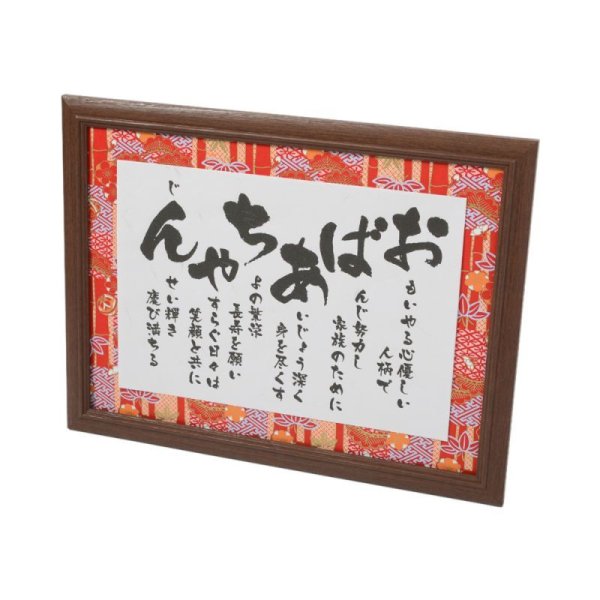 おばあちゃん
もいやる心優しい
人柄で
んじ努力し
家族のために
いじょう深く
身を尽くす
よの
長寿を願い
すらぐ日々は
笑顔と共に
じ
せい輝き
慶び満ちる